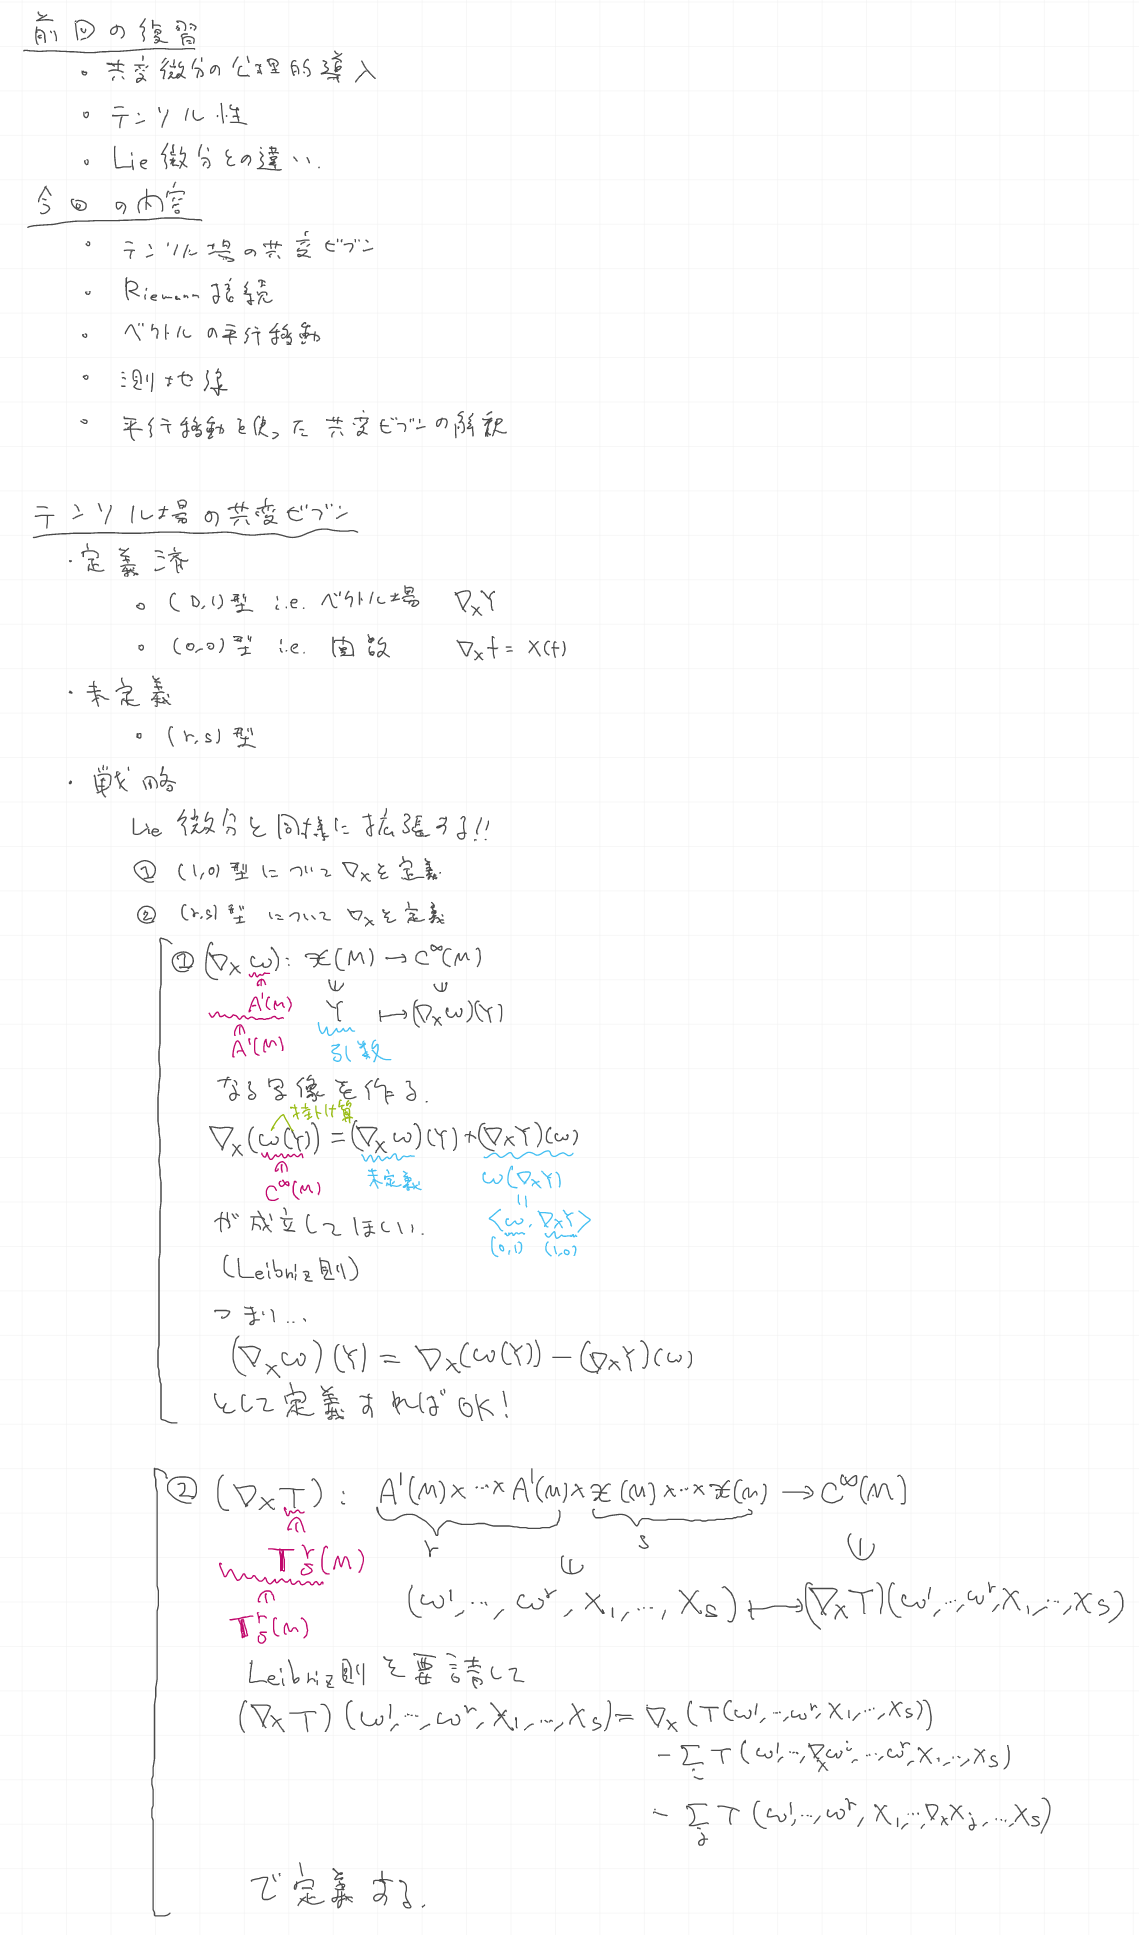 前回の復習
・共変微分の公理的導入
・テンソル性
・Lie微分との違い.
今回の内容
・テンソル場の共変ビブン
・Riemann接続
・ベクトルの平行移動
・測地線
・平行移動を使った共変ビブンの解釈
テンソル場の共変ビブン
・定義済
・(0,1)型 i.e. ベクトル場 ∇_X Y
・(0,0)型 i.e. 函数 ∇_X f = X(f)
・未定義
・(r,s)型
・戦略
Lie微分と同様に拡張する!!
① (1,0)型について∇_Xを定義
② (r,s)型について∇_Xを定義
① (∇_X ω): 𝔛(M) → C^∞(M)
A¹(M) Y ↦ (∇_X ω)(Y)
A¹(M) 引数
なる写像を作る.
掛け算
∇_X(ω(Y)) = (∇_X ω)(Y) + (∇_X Y)(ω)
C^∞(M) 未定義 ω(∇_X Y)
=
が成立してほしい. <ω, ∇_X Y>
(0,1) (1,0)
(Leibniz則)
つまり...
(∇_X ω)(Y) = ∇_X(ω(Y)) − (∇_X Y)(ω)
として定義すればOK!
② (∇_X T): A¹(M)×…×A¹(M)×𝔛(M)×…×𝔛(M) → C^∞(M)
r s
T^r_s(M)
(ω¹,…,ω^r, X₁,…,X_s) ↦ (∇_X T)(ω¹,…,ω^r, X₁,…,X_s)
T^r_s(M)
Leibniz則を要請して
(∇_X T)(ω¹,…,ω^r, X₁,…,X_s) = ∇_X(T(ω¹,…,ω^r, X₁,…,X_s))
− Σ_i T(ω¹,…,∇_X ω^i,…,ω^r, X₁,…,X_s)
− Σ_j T(ω¹,…,ω^r, X₁,…,∇_X X_j,…,X_s)
で定義する.